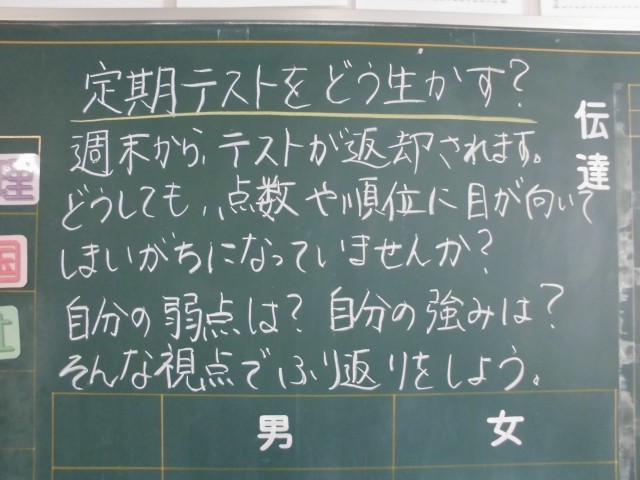 定期テストをどう生かす?
週末から、テストが返却されます。
どうしても、点数や順位に目が向いて
しまいがちになっていませんか?
自分の弱点は? 自分の強みは?
そんな視点でふり返りをしよう。
伝達
理
国
社
男
女